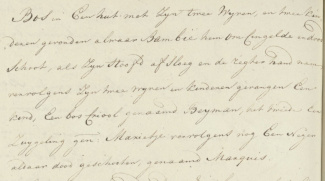 Bos in Een hut met Zyn twee Wyven, en twee Kin
deren gevonden alwaar Bam bie hem ons Cingelde en door
Schoot, als Zyn Hoofd af Sloeg en de regter hand nam
vervolgens Zyn twee wyven en kinderen gevangen Een
kind, Een bos Creool genaamd Beyman, het twede een
Zuggeling gen: Mariettje vervolgens nog Een Neger
aldaar dood geschooten, genaamd Marquis